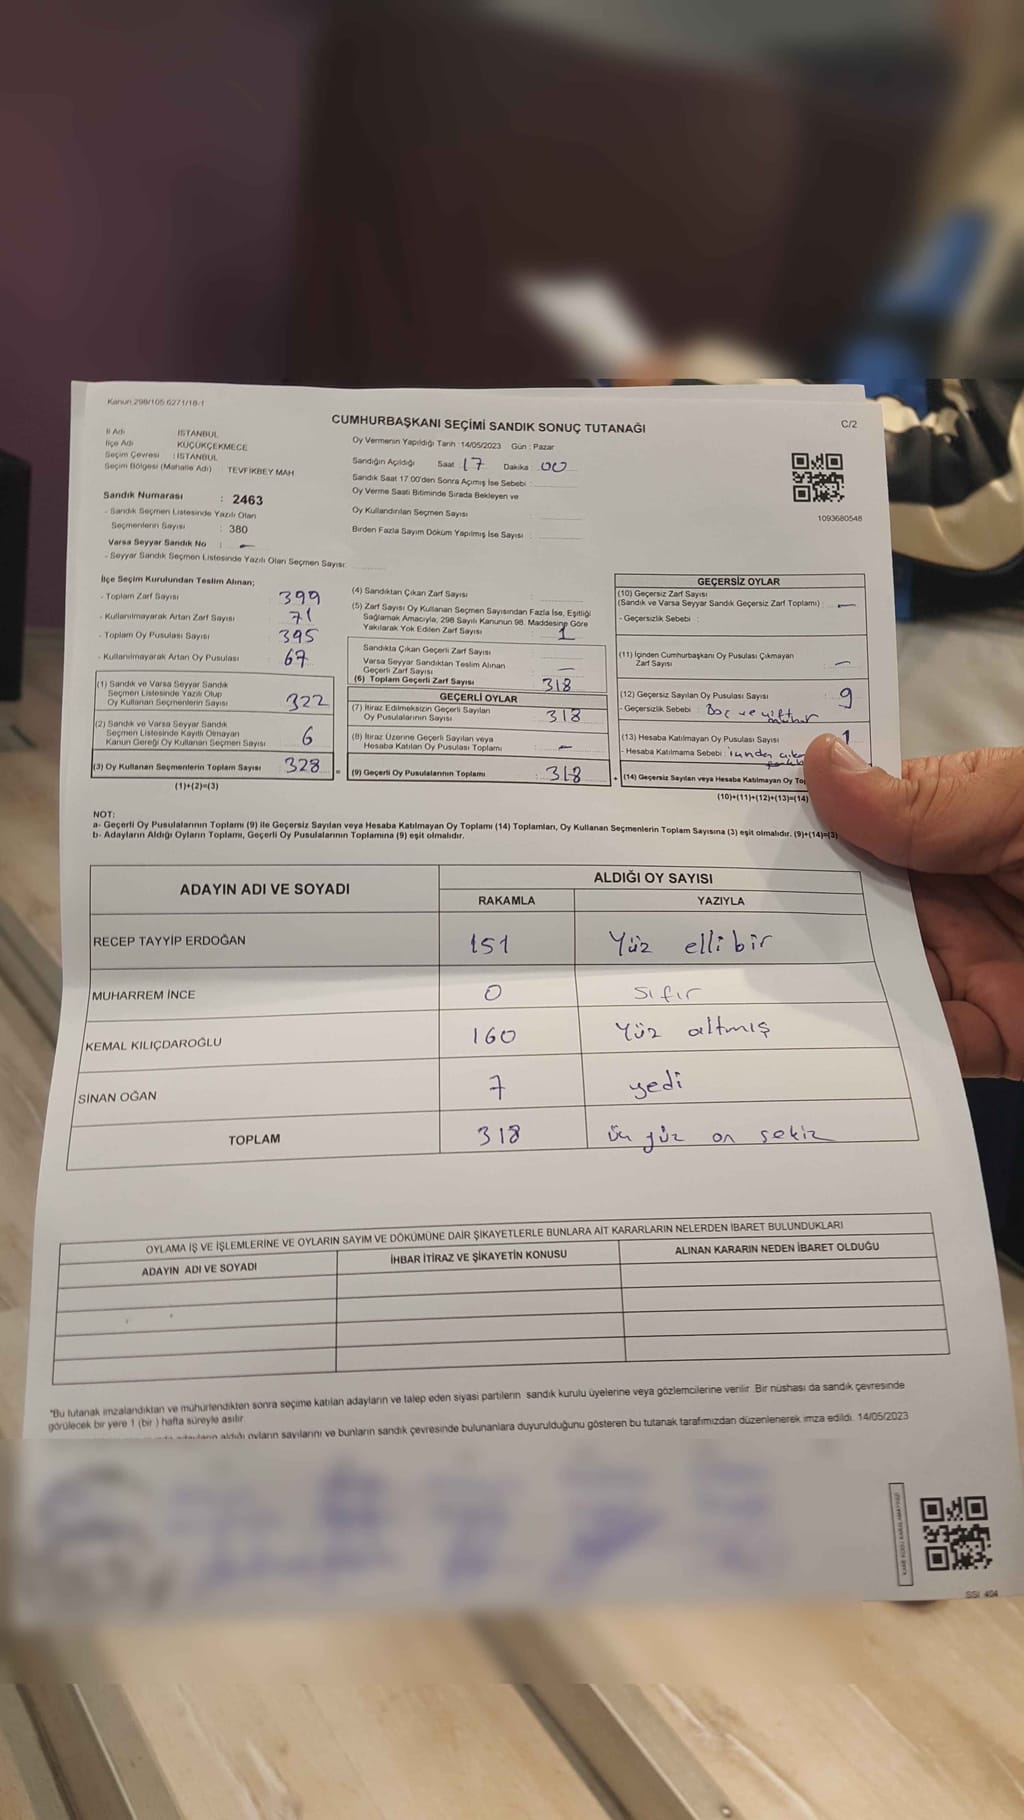 Kanun 298/105 6271/18-1
CUMHURBAŞKANI SEÇİMİ SANDIK SONUÇ TUTANAĞI
C/2
İl Adı : İSTANBUL
İlçe Adı : KÜÇÜKÇEKMECE
Seçim Çevresi : İSTANBUL
Seçim Bölgesi (Mahalle Adı) TEVFİKBEY MAH
Oy Vermenin Yapıldığı Tarih : 14/05/2023 Gün : Pazar
Sandığın Açıldığı Saat : 17 Dakika : 00
Sandık Saat 17.00'den Sonra Açımış İse Sebebi :
Oy Verme Saati Bitiminde Sırada Bekleyen ve
Oy Kullandırılan Seçmen Sayısı
Birden Fazla Sayım Döküm Yapılmış İse Sayısı :
1093680548
Sandık Numarası : 2463
- Sandık Seçmen Listesinde Yazılı Olan
Seçmenlerin Sayısı : 380
Varsa Seyyar Sandık No : -
- Seyyar Sandık Seçmen Listesinde Yazılı Olan Seçmen Sayısı:
İlçe Seçim Kurulundan Teslim Alınan;
- Toplam Zarf Sayısı 399
- Kullanılmayarak Artan Zarf Sayısı : 71
- Toplam Oy Pusulası Sayısı : 395
- Kullanılmayarak Artan Oy Pusulası : 67
(1) Sandık ve Varsa Seyyar Sandık
Seçmen Listesinde Yazılı Olup
Oy Kullanan Seçmenlerin Sayısı : 322
(2) Sandık ve Varsa Seyyar Sandık
Seçmen Listesinde Kayıtlı Olmayan
Kanun Gereği Oy Kullanan Seçmen Sayısı : 6
(3) Oy Kullanan Seçmenlerin Toplam Sayısı : 328
(1)+(2)=(3)
(4) Sandıktan Çıkan Zarf Sayısı :
(5) Zarf Sayısı Oy Kullanan Seçmen Sayısından Fazla İse, Eşitliği
Sağlamak Amacıyla, 298 Sayılı Kanunun 98. Maddesine Göre
Yakılarak Yok Edilen Zarf Sayısı : 1
Sandıkta Çıkan Geçerli Zarf Sayısı
Varsa Seyyar Sandıktan Teslim Alınan
Geçerli Zarf Sayısı : -
(6) Toplam Geçerli Zarf Sayısı 318
GEÇERLİ OYLAR
(7) İtiraz Edilmeksizin Geçerli Sayılan
Oy Pusulalarının Sayısı : 318
(8) İtiraz Üzerine Geçerli Sayılan veya
Hesaba Katılan Oy Pusulası Toplamı : -
= (9) Geçerli Oy Pusulalarının Toplamı : 318
GEÇERSİZ OYLAR
(10) Geçersiz Zarf Sayısı
(Sandık ve Varsa Seyyar Sandık Geçersiz Zarf Toplamı) : -
- Geçersizlik Sebebi :
(11) İçinden Cumhurbaşkanı Oy Pusulası Çıkmayan
Zarf Sayısı : -
(12) Geçersiz Sayılan Oy Pusulası Sayısı : 9
- Geçersizlik Sebebi : Boş ve çift mühür
(13) Hesaba Katılmayan Oy Pusulası Sayısı 1
- Hesaba Katılmama Sebebi :
+ (14) Geçersiz Sayılan veya Hesaba Katılmayan Oy
(10)+(11)+(12)+(13)=(14)
NOT:
a- Geçerli Oy Pusulalarının Toplamı (9) ile Geçersiz Sayılan veya Hesaba Katılmayan Oy Toplamı (14) Toplamları, Oy Kullanan Seçmenlerin Toplam Sayısına (3) eşit olmalıdır. (9)+(14)=(3)
b- Adayların Aldığı Oyların Toplamı, Geçerli Oy Pusulalarının Toplamına (9) eşit olmalıdır.
ADAYIN ADI VE SOYADI
ALDIĞI OY SAYISI
RAKAMLA YAZIYLA
RECEP TAYYİP ERDOĞAN 151 Yüz elli bir
MUHARREM İNCE 0 sıfır
KEMAL KILIÇDAROĞLU 160 Yüz altmış
SİNAN OĞAN 7 yedi
TOPLAM 318 üç yüz on sekiz
OYLAMA İŞ VE İŞLEMLERİNE VE OYLARIN SAYIM VE DÖKÜMÜNE DAİR ŞİKAYETLERLE BUNLARA AİT KARARLARIN NELERDEN İBARET BULUNDUKLARI
ADAYIN ADI VE SOYADI İHBAR İTİRAZ VE ŞİKAYETİN KONUSU ALINAN KARARIN NEDEN İBARET OLDUĞU
*Bu tutanak imzalandıktan ve mühürlendikten sonra seçime katılan adayların ve talep eden siyasi partilerin sandık kurulu üyelerine veya gözlemcilerine verilir. Bir nüshası da sandık çevresinde
görülecek bir yere 1 (bir ) hafta süreyle asılır.
aldığı oyların sayılarını ve bunların sandık çevresinde bulunanlara duyurulduğunu gösteren bu tutanak tarafımızdan düzenlenerek imza edildi. 14/05/2023
SSI 404